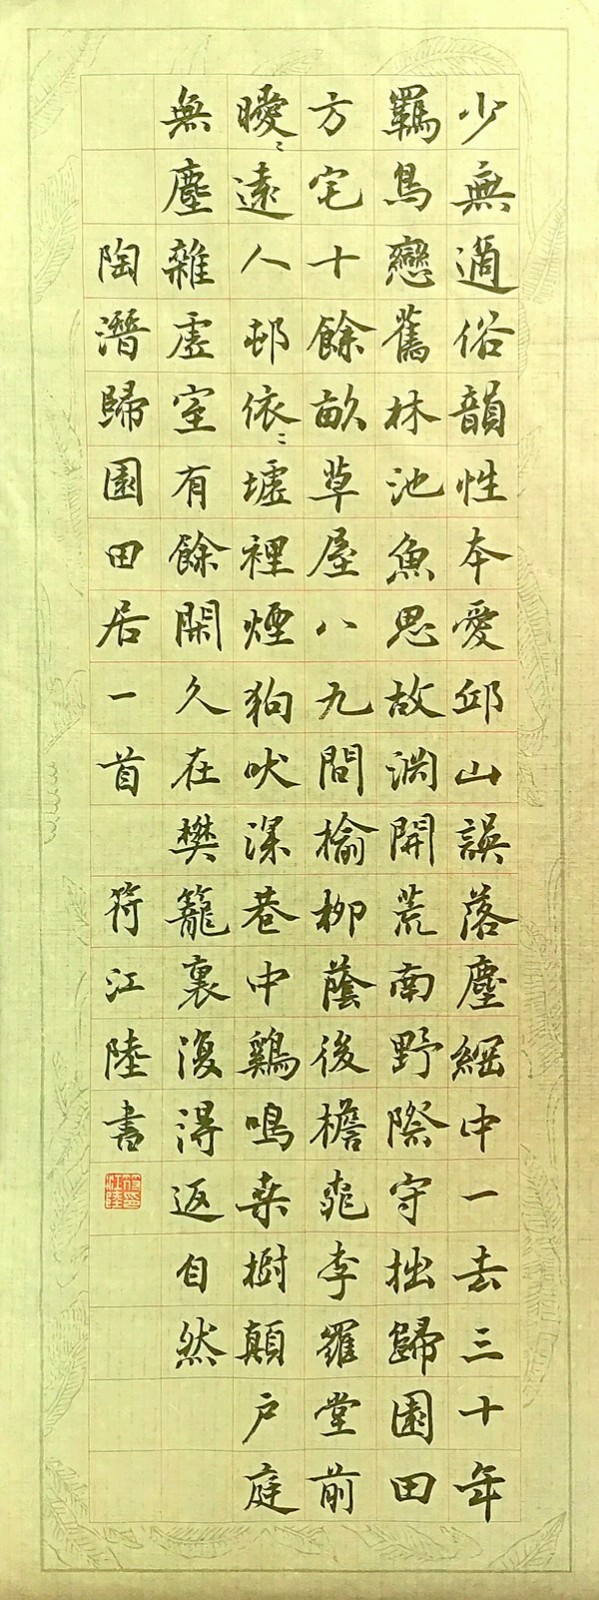 少無適俗韻性本愛邱山誤落塵網中一去三十年
羈鳥戀舊林池魚思故淵開荒南野際守拙歸園田
方宅十餘畝草屋八九間榆柳蔭後檐桃李羅堂前
曖〻遠人邨依〻墟裡煙狗吠深巷中鷄鳴桑樹顛户庭
無塵雜虛室有餘閑久在樊籠裏復得返自然
陶潛歸園田居一首 符江陸書